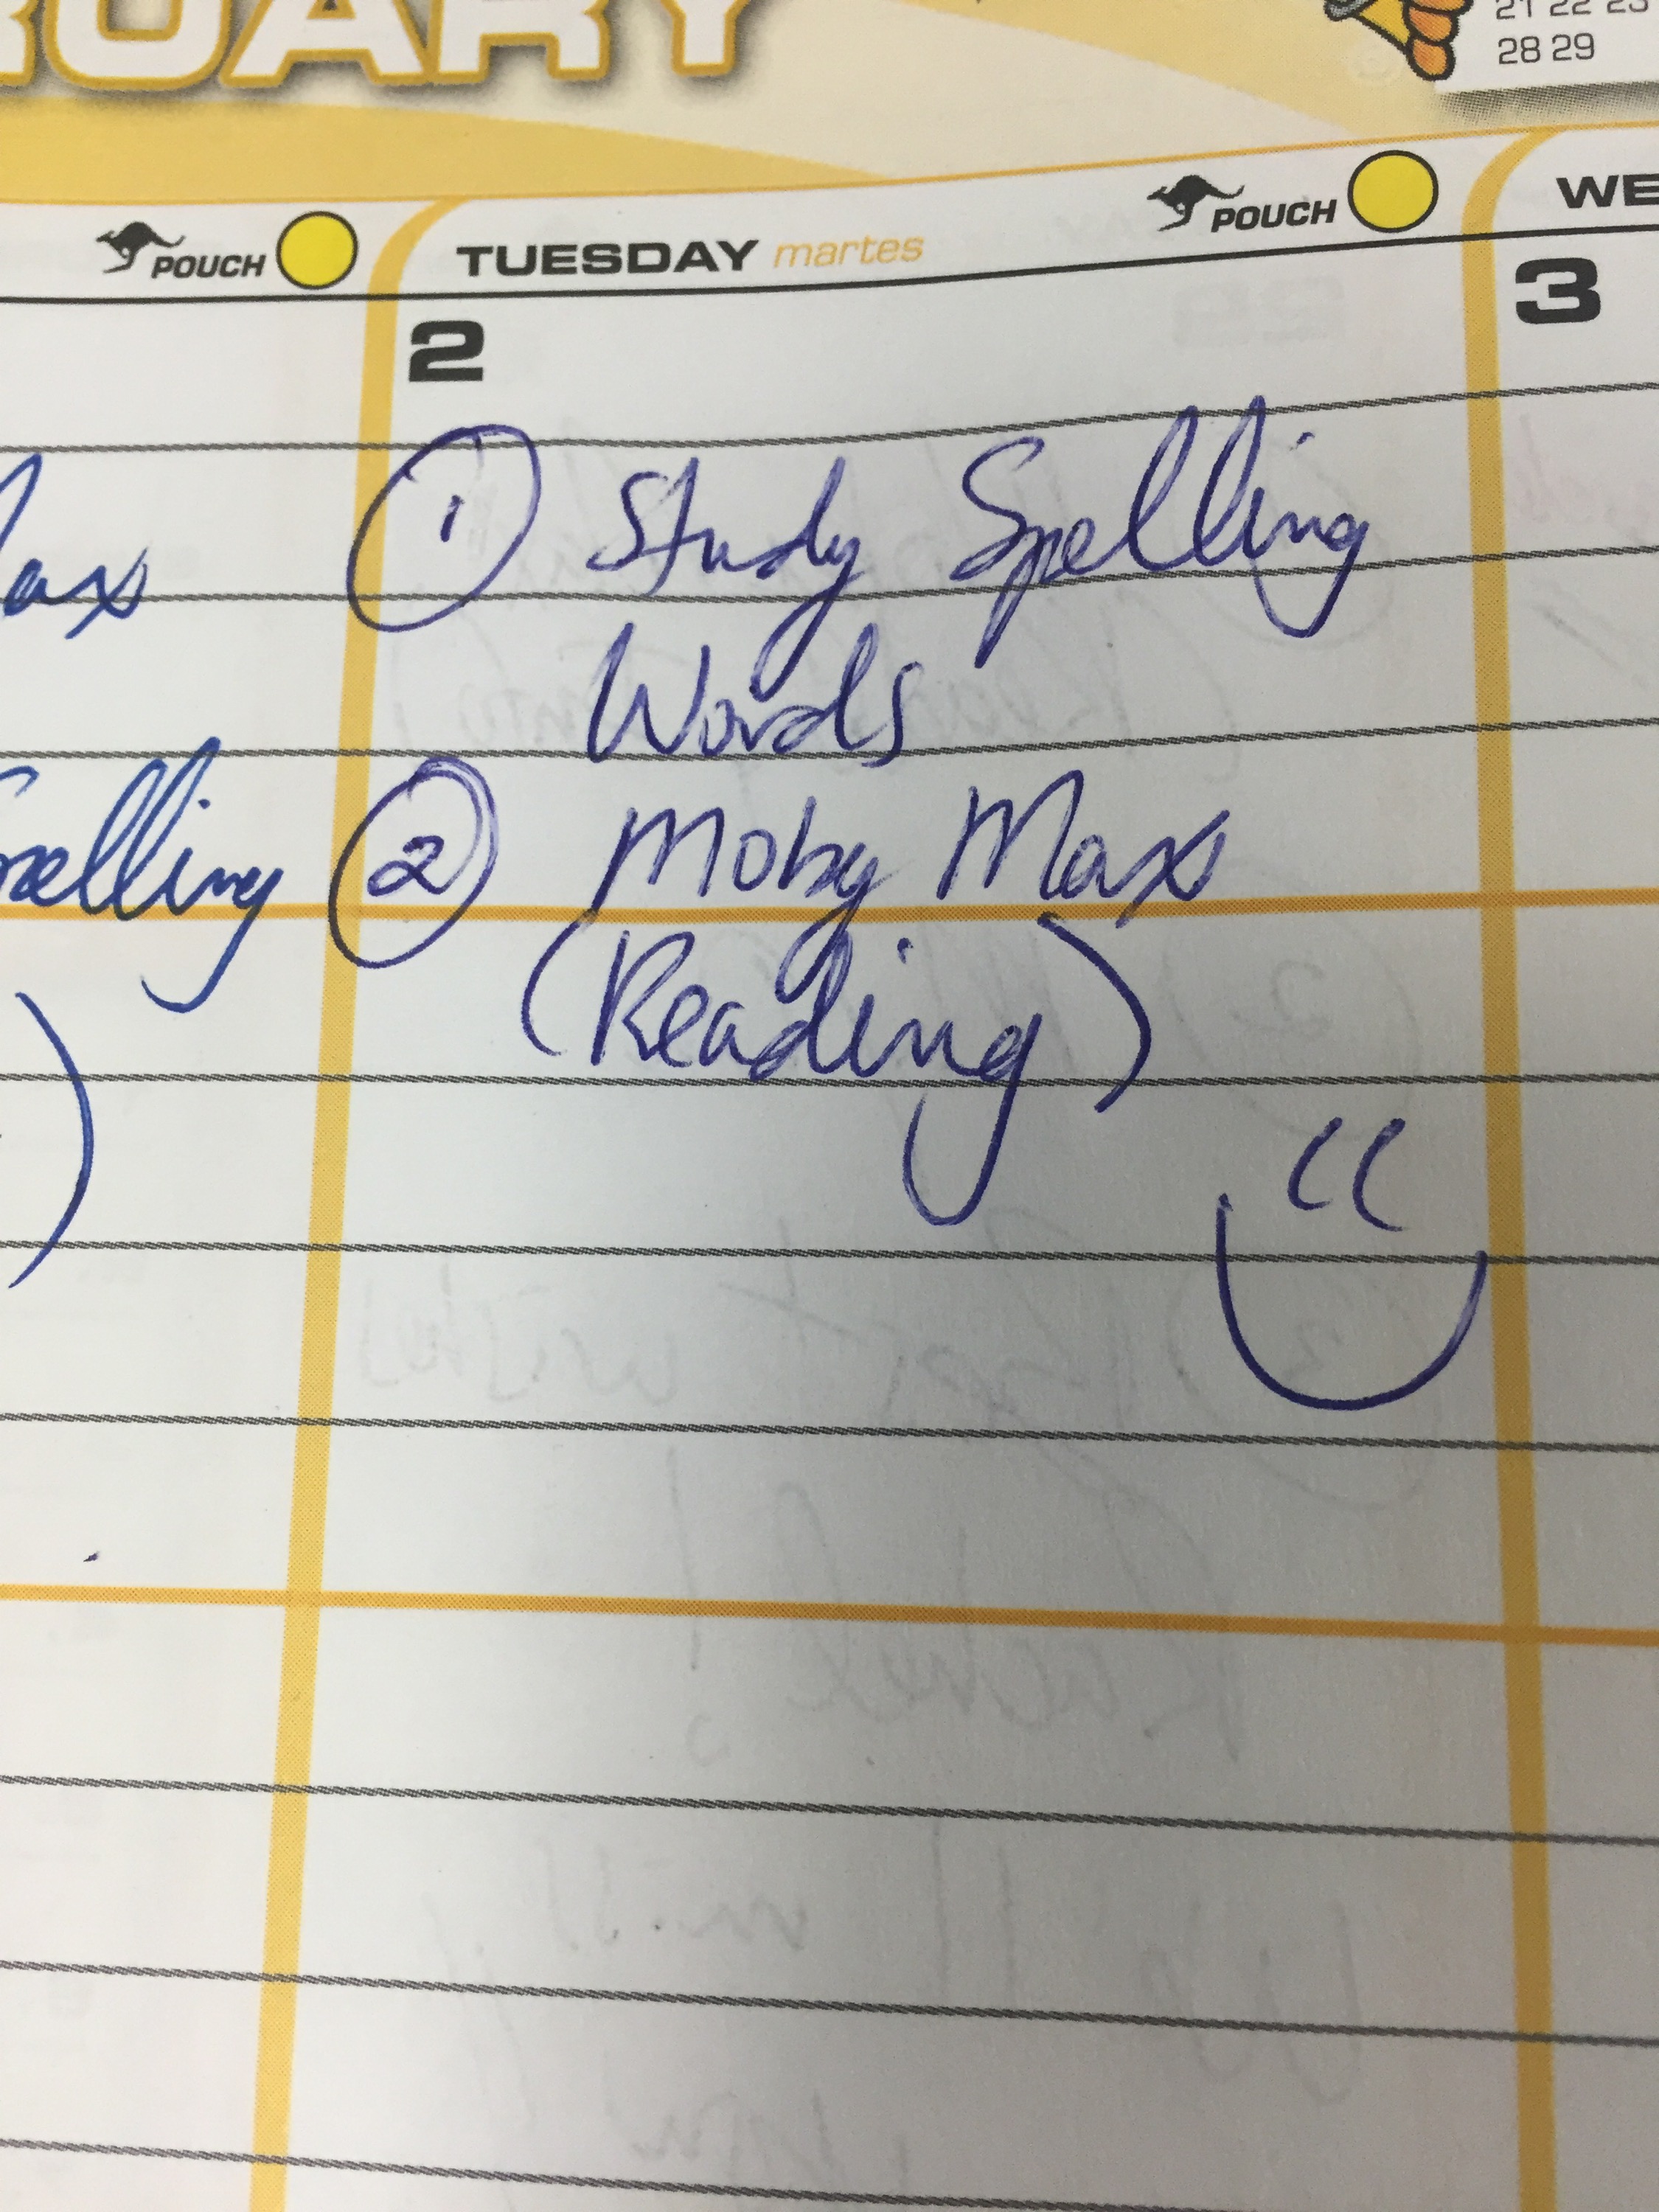 RUARY
21 22 23
28 29
POUCH
TUESDAY martes
POUCH
WE
2
3
ax
① Study Spelling
Words
pelling
② Moby Max
(Reading)